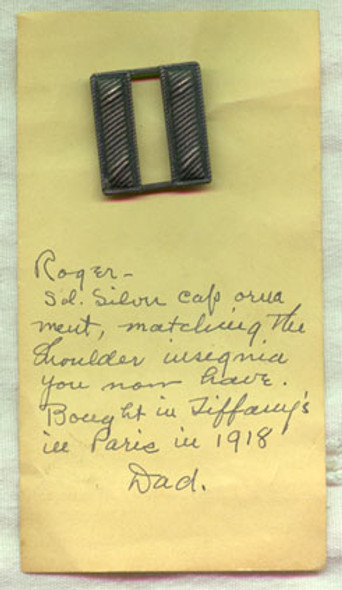 Roger-
Sol. Silver cap orna
ment, matching the
shoulder insegnia
you now have.
Bought in Tiffany's
in Paris in 1918
Dad.